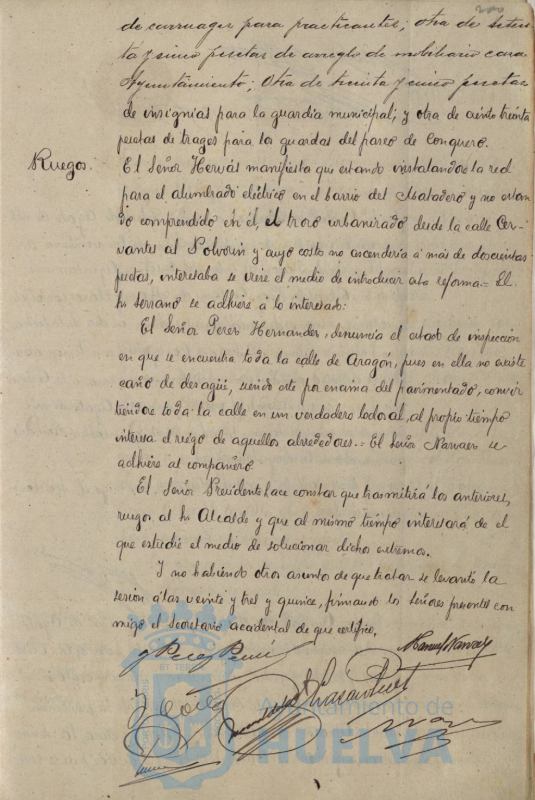 de carruages para practicantes; otra de seten-
ta y cinco pesetas de arreglo de mobiliario casa
Ayuntamiento; otra de treinta y cinco pesetas
de insignias para la guardia municipal; y otra de ciento treinta
pesetas de trages para los guardas del paseo de Conquero.
Ruegos.
El Señor Hervás manifiesta que estando instalandose la red
para el alumbrado eléctrico en el barrio del Matadero y no estan-
do comprendido en él, el trozo urbanizado desde la calle Cer-
vantes al Polvorin y cuyo costo no ascendería á más de doscientas
pesetas, interesaba se viese el medio de introducir esta reforma.= El
Sr Serrano se adhiere á lo interesado:
El Señor Perez Hernandez, denuncia el estado de infección
en que se encuentra toda la calle de Aragón, pues en ella no existe
caño de desagüe, siendo este por encima del pavimentado, convir
tiendose toda la calle en un verdadero lodazal, al propio tiempo
interesa el riego de aquellos alrededores.= El Señor Narvaez se
adhiere al compañero
El Señor Presidente hace constar que trasmitirá los anteriores,
ruegos al Sr Alcalde y que al mismo tiempo interesará de el
que estudie el medio de solucionar dichos extremos.
Y no habiendo otros asuntos de que tratar se levantó la
sesión á las veinte y tres y quince, firmando los señores presentes con
migo el secretario accidental de que certifico.
Manuel Narvaez
ET TERR
Ayuntamiento de
HUELVA